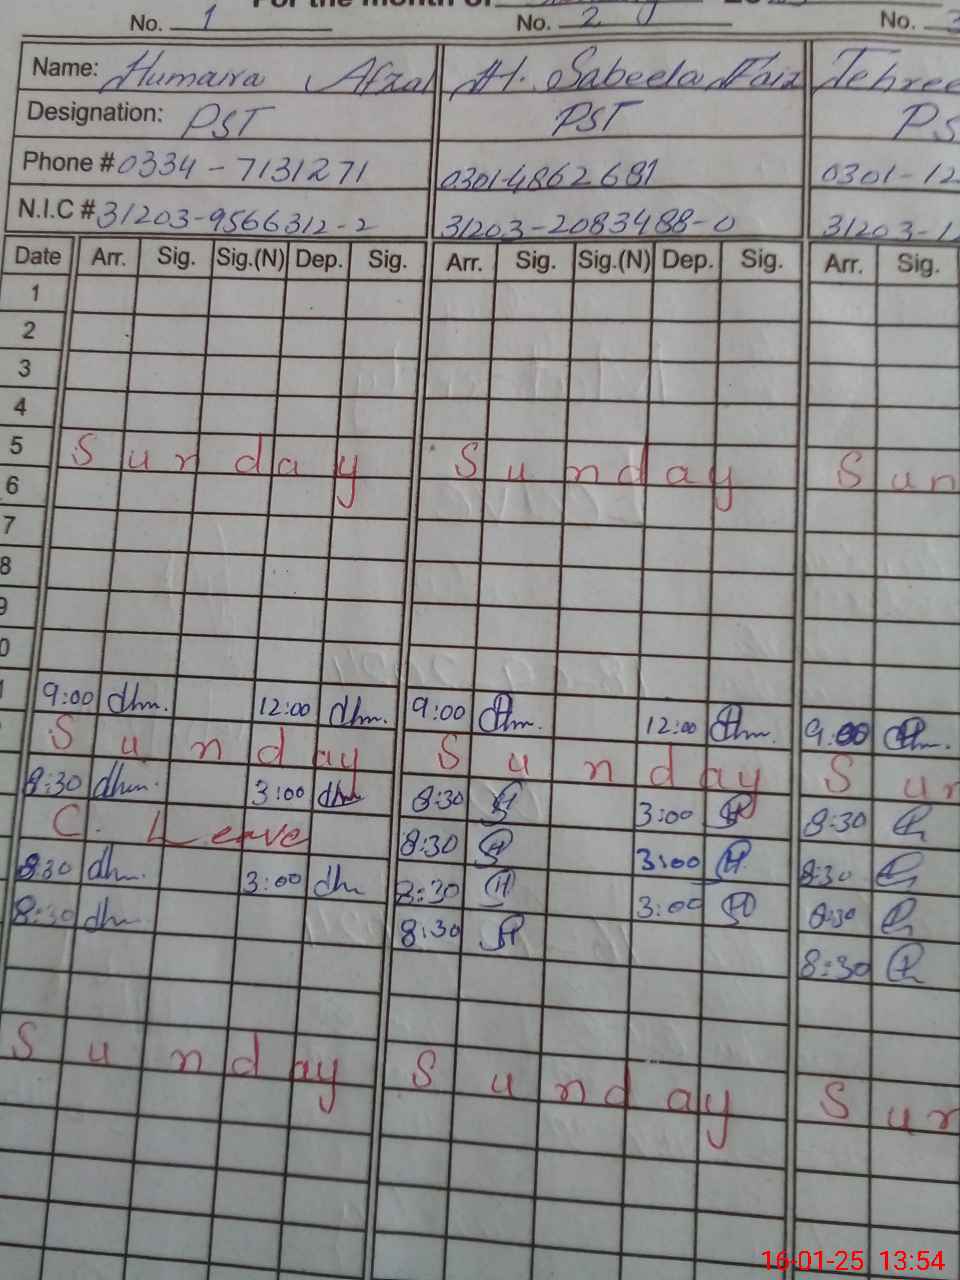 For the month of
No. 1 No. 2 No. 3
Name: Humaira Afzal H. Sabeela Faiz Tehree
Designation: PST PST PS
Phone # 0334-7131271 0301-4862681 0301-12
N.I.C # 31203-9566312-2 31203-2083488-0 31203-1
Date Arr. Sig. Sig.(N) Dep. Sig. Arr. Sig. Sig.(N) Dep. Sig. Arr. Sig.
1
2
3
4
5 Sunday Sunday Sun
6
7
8
9
0
9:00 12:00 9:00 12:00 9:00
Sunday Sunday Sun
8:30 3:00 8:30 3:00 8:30
C. Leave 8:30 3:00 8:30
8:30 3:00 8:30 3:00 8:30
8:30 8:30 8:30
Sunday Sunday Sun
16-01-25 13:54